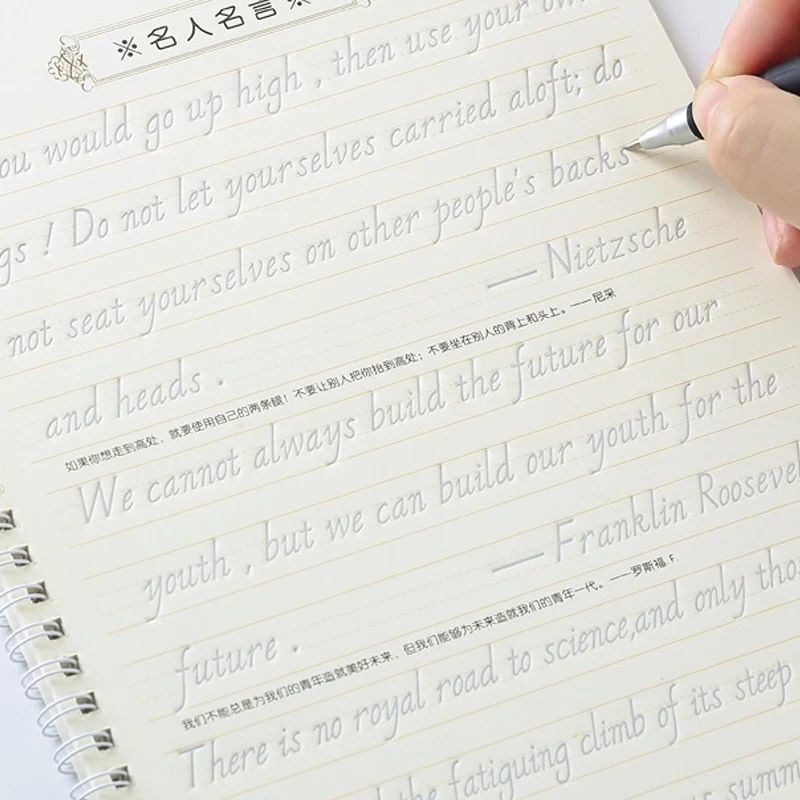 ※名人名言※
ou would go up high , then use your ow
gs ! Do not let yourselves carried aloft; do
not seat yourselves on other people's backs
and heads .
— Nietzsche
如果你想走到高处，就要使用自己的两条腿！不要让别人把你抬到高处；不要坐在别人的背上和头上。——尼采
We cannot always build the future for our
youth , but we can build our youth for the
future .
— Franklin Roosevel
我们不能总是为我们的青年造就美好未来，但我们能够为未来造就我们的青年一代。——罗斯福.F.
There is no royal road to science,and only tho
the fatiguing climb of its steep
us summ